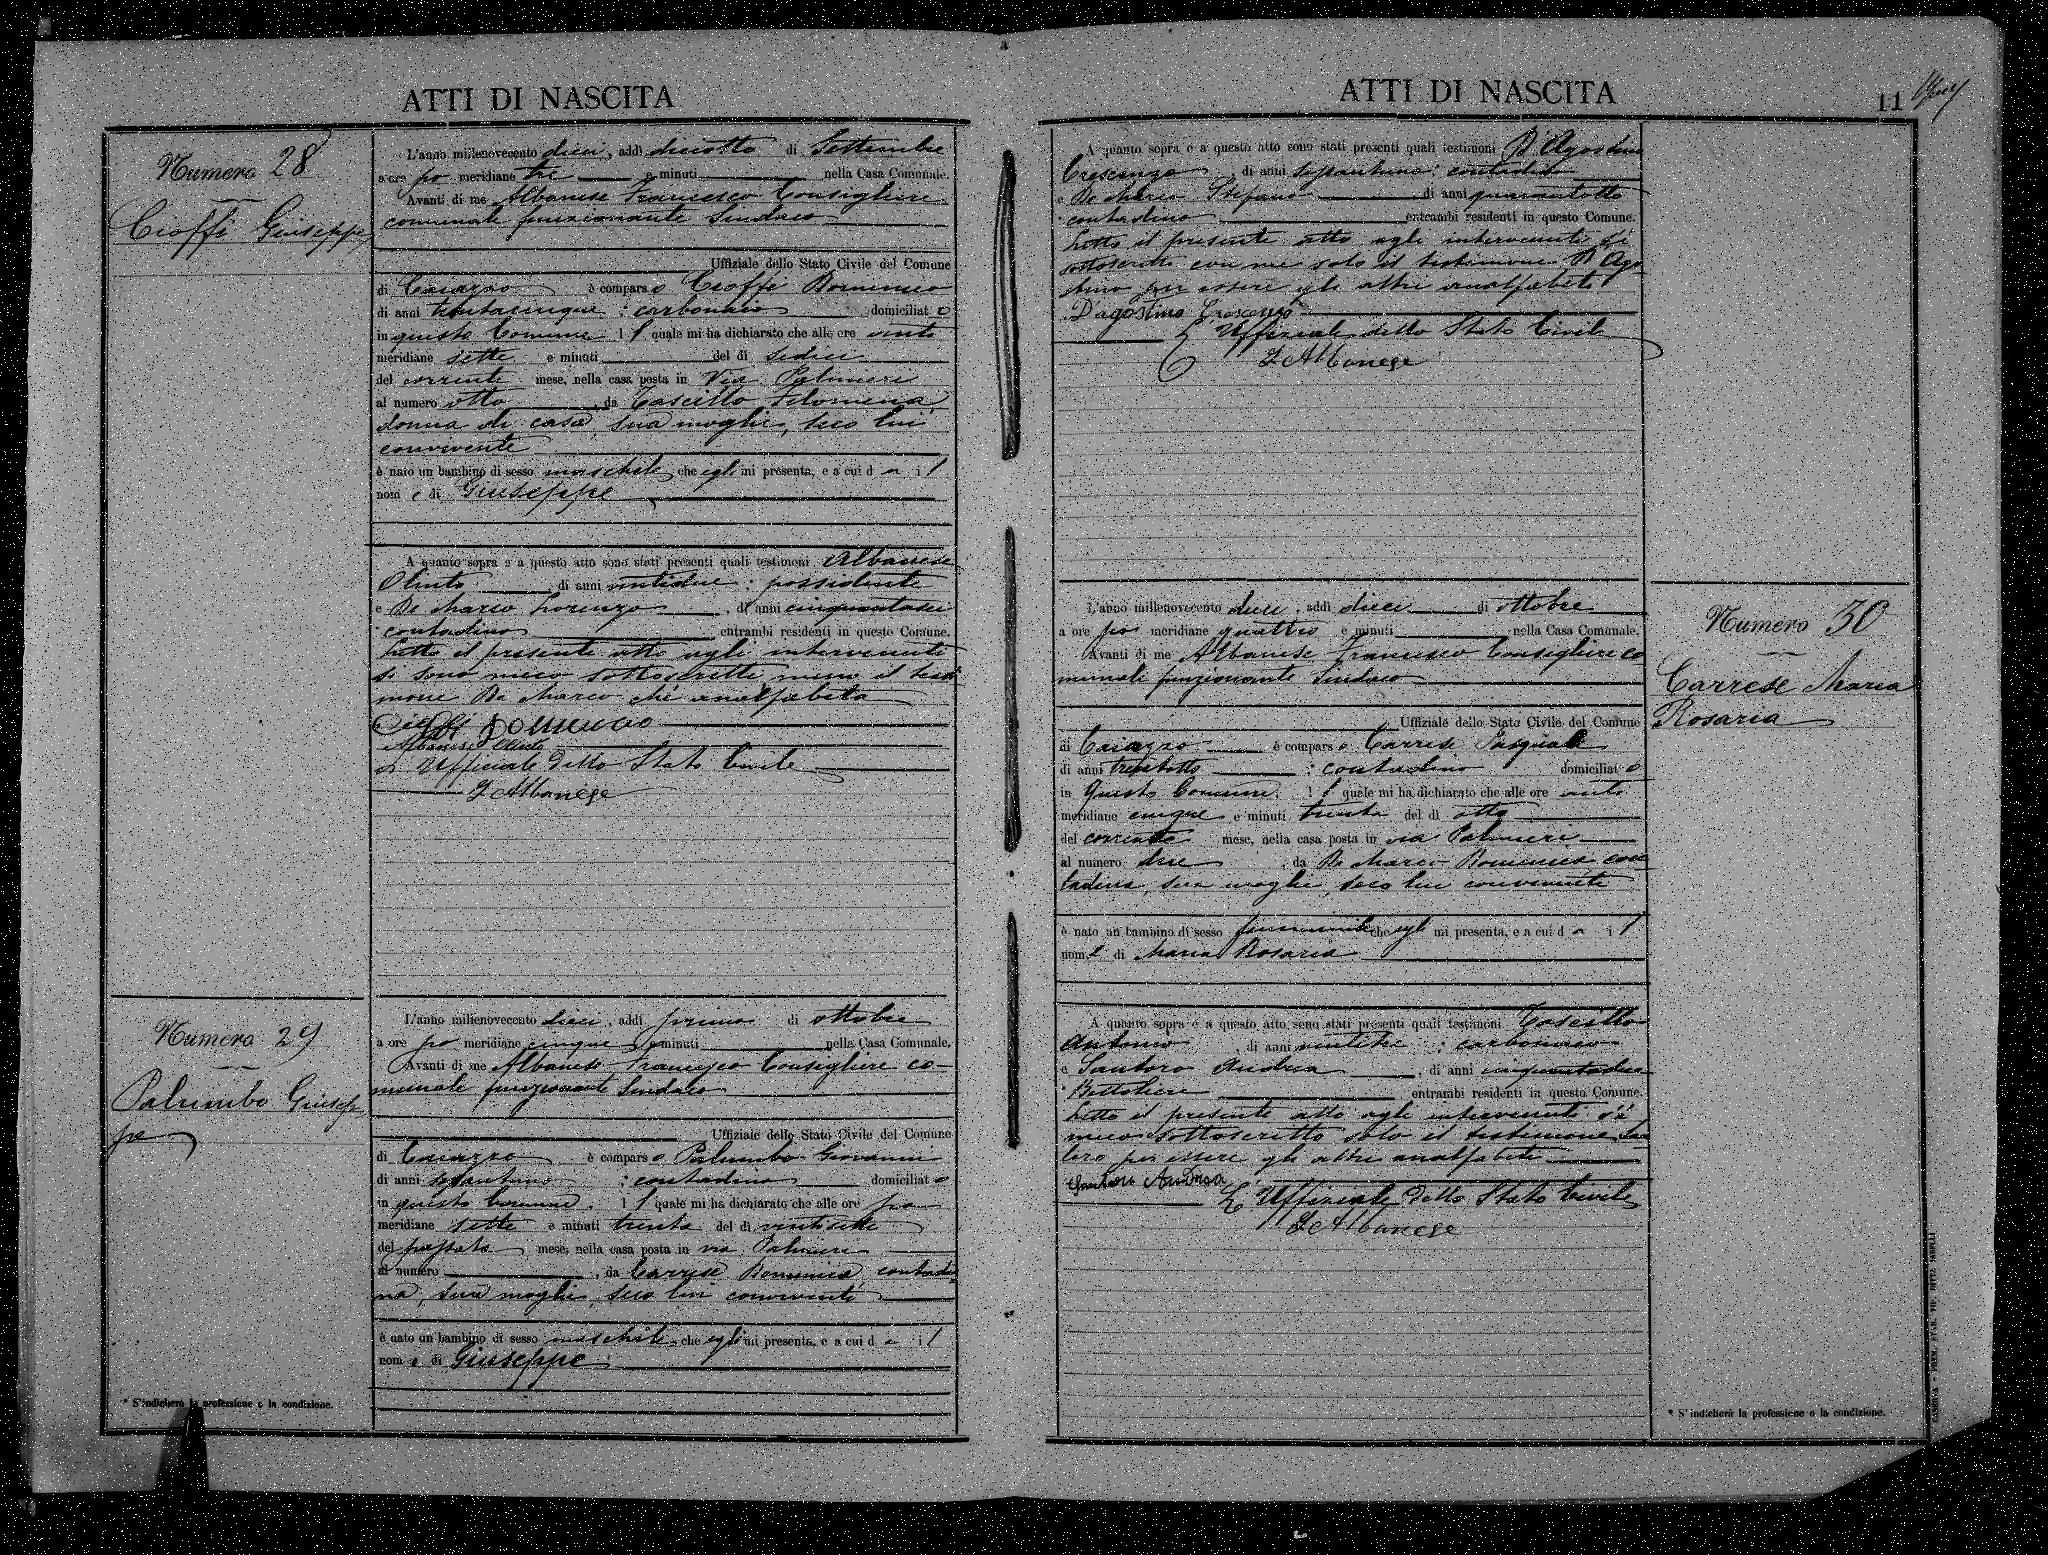 ATTI DI NASCITA
Numero 28
Cioffi Giuseppe
L'anno millenovecento dieci, addì diciotto di Settembre
a ore po meridiane tre e minuti nella Casa Comunale.
Avanti di me Albanese Francesco Consigliere
comunale funzionante Sindaco
Uffiziale dello Stato Civile del Comune
di Caiazzo è comparso Cioffi Domenico
di anni trentacinque : carbonaio domiciliato
in questo Comune il quale mi ha dichiarato che alle ore anti
meridiane sette e minuti del dì sedici
del corrente mese, nella casa posta in Via Palmieri
al numero otto, da Tascitto Filomena,
donna di casa, sua moglie, seco lui
convivente
è nato un bambino di sesso maschile che egli mi presenta, e a cui dà il
nome di Giuseppe
A quanto sopra e a questo atto sono stati presenti quali testimoni Albanese
Olinto di anni ventidue : possidente
e De Marco Lorenzo, di anni cinquantasei
contadino entrambi residenti in questo Comune.
Letto il presente atto agli intervenuti
si sono meco sottoscritti meno il testi
mone De Marco chè analfabeta
Cioffi Domenico
Albanese Olinto
L'Ufficiale dello Stato Civile
F Albanese
Numero 29
Palumbo Giusep
pe
L'anno millenovecento dieci, addì primo di ottobre
a ore po meridiane cinque e minuti nella Casa Comunale.
Avanti di me Albanese Francesco Consigliere co-
munale funzionante Sindaco
Uffiziale dello Stato Civile del Comune
di Caiazzo è comparso Palumbo Giovanni
di anni : contadino domiciliato
in questo Comune. il quale mi ha dichiarato che alle ore po
meridiane sette e minuti trenta del dì ventisette
del passato mese, nella casa posta in via Palmieri
al numero, da Carrese Domenica, contadi
na, sua moglie, seco lui convivente
è nato un bambino di sesso maschile che egli mi presenta, e a cui dà il
nome di Giuseppe
* S'indicherà la professione o la condizione.
ATTI DI NASCITA
11
A quanto sopra e a questo atto sono stati presenti quali testimoni D'Agostino
Crescenzo, di anni : contadino
e De Marco Stefano di anni quarantotto
contadino entrambi residenti in questo Comune.
Letto il presente atto agli intervenuti si è
sottoscritto con me solo il testimone D'Ago
stino per essere gli altri analfabeti
D'agostino Crescenzo
L'Uffiziale dello Stato Civile
F Albanese
L'anno millenovecento dieci, addì dieci di ottobre
a ore po meridiane quattro e minuti nella Casa Comunale.
Avanti di me Albanese Francesco Consigliere co
munale funzionante Sindaco
Uffiziale dello Stato Civile del Comune
di Caiazzo è comparso Carrese Pasquale
di anni trentotto : contadino domiciliato
in questo Comune. il quale mi ha dichiarato che alle ore anti
meridiane cinque e minuti trenta del dì otto
del corrente mese, nella casa posta in via Palmieri
al numero due, da De Marco Domenica con
tadina, sua moglie, seco lui convivente
è nato un bambino di sesso femminile che egli mi presenta, e a cui dà il
nome di Maria Rosaria
A quanto sopra e a questo atto sono stati presenti quali testimoni Tascitto
Antonio, di anni ventitre : carbonaio
e Santoro Andrea, di anni cinquantadue
Bottoliere entrambi residenti in questo Comune.
Letto il presente atto agli intervenuti s'è
meco sottoscritto solo il testimone San
toro per essere gli altri analfabeti
Santoro Andrea
L'Uffiziale dello Stato Civile
F Albanese
Numero 30
Carrese Maria
Rosaria
* S'indicherà la professione o la condizione.